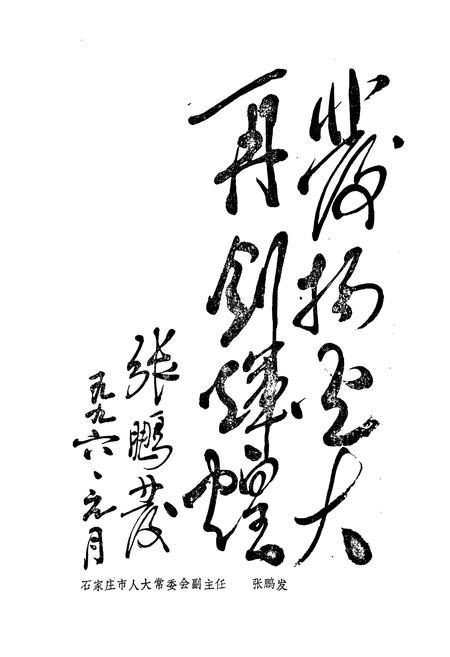 發扬光大
再创辉煌
张鹏發
一九九六、元月
石家庄市人大常委会副主任 张鹏发